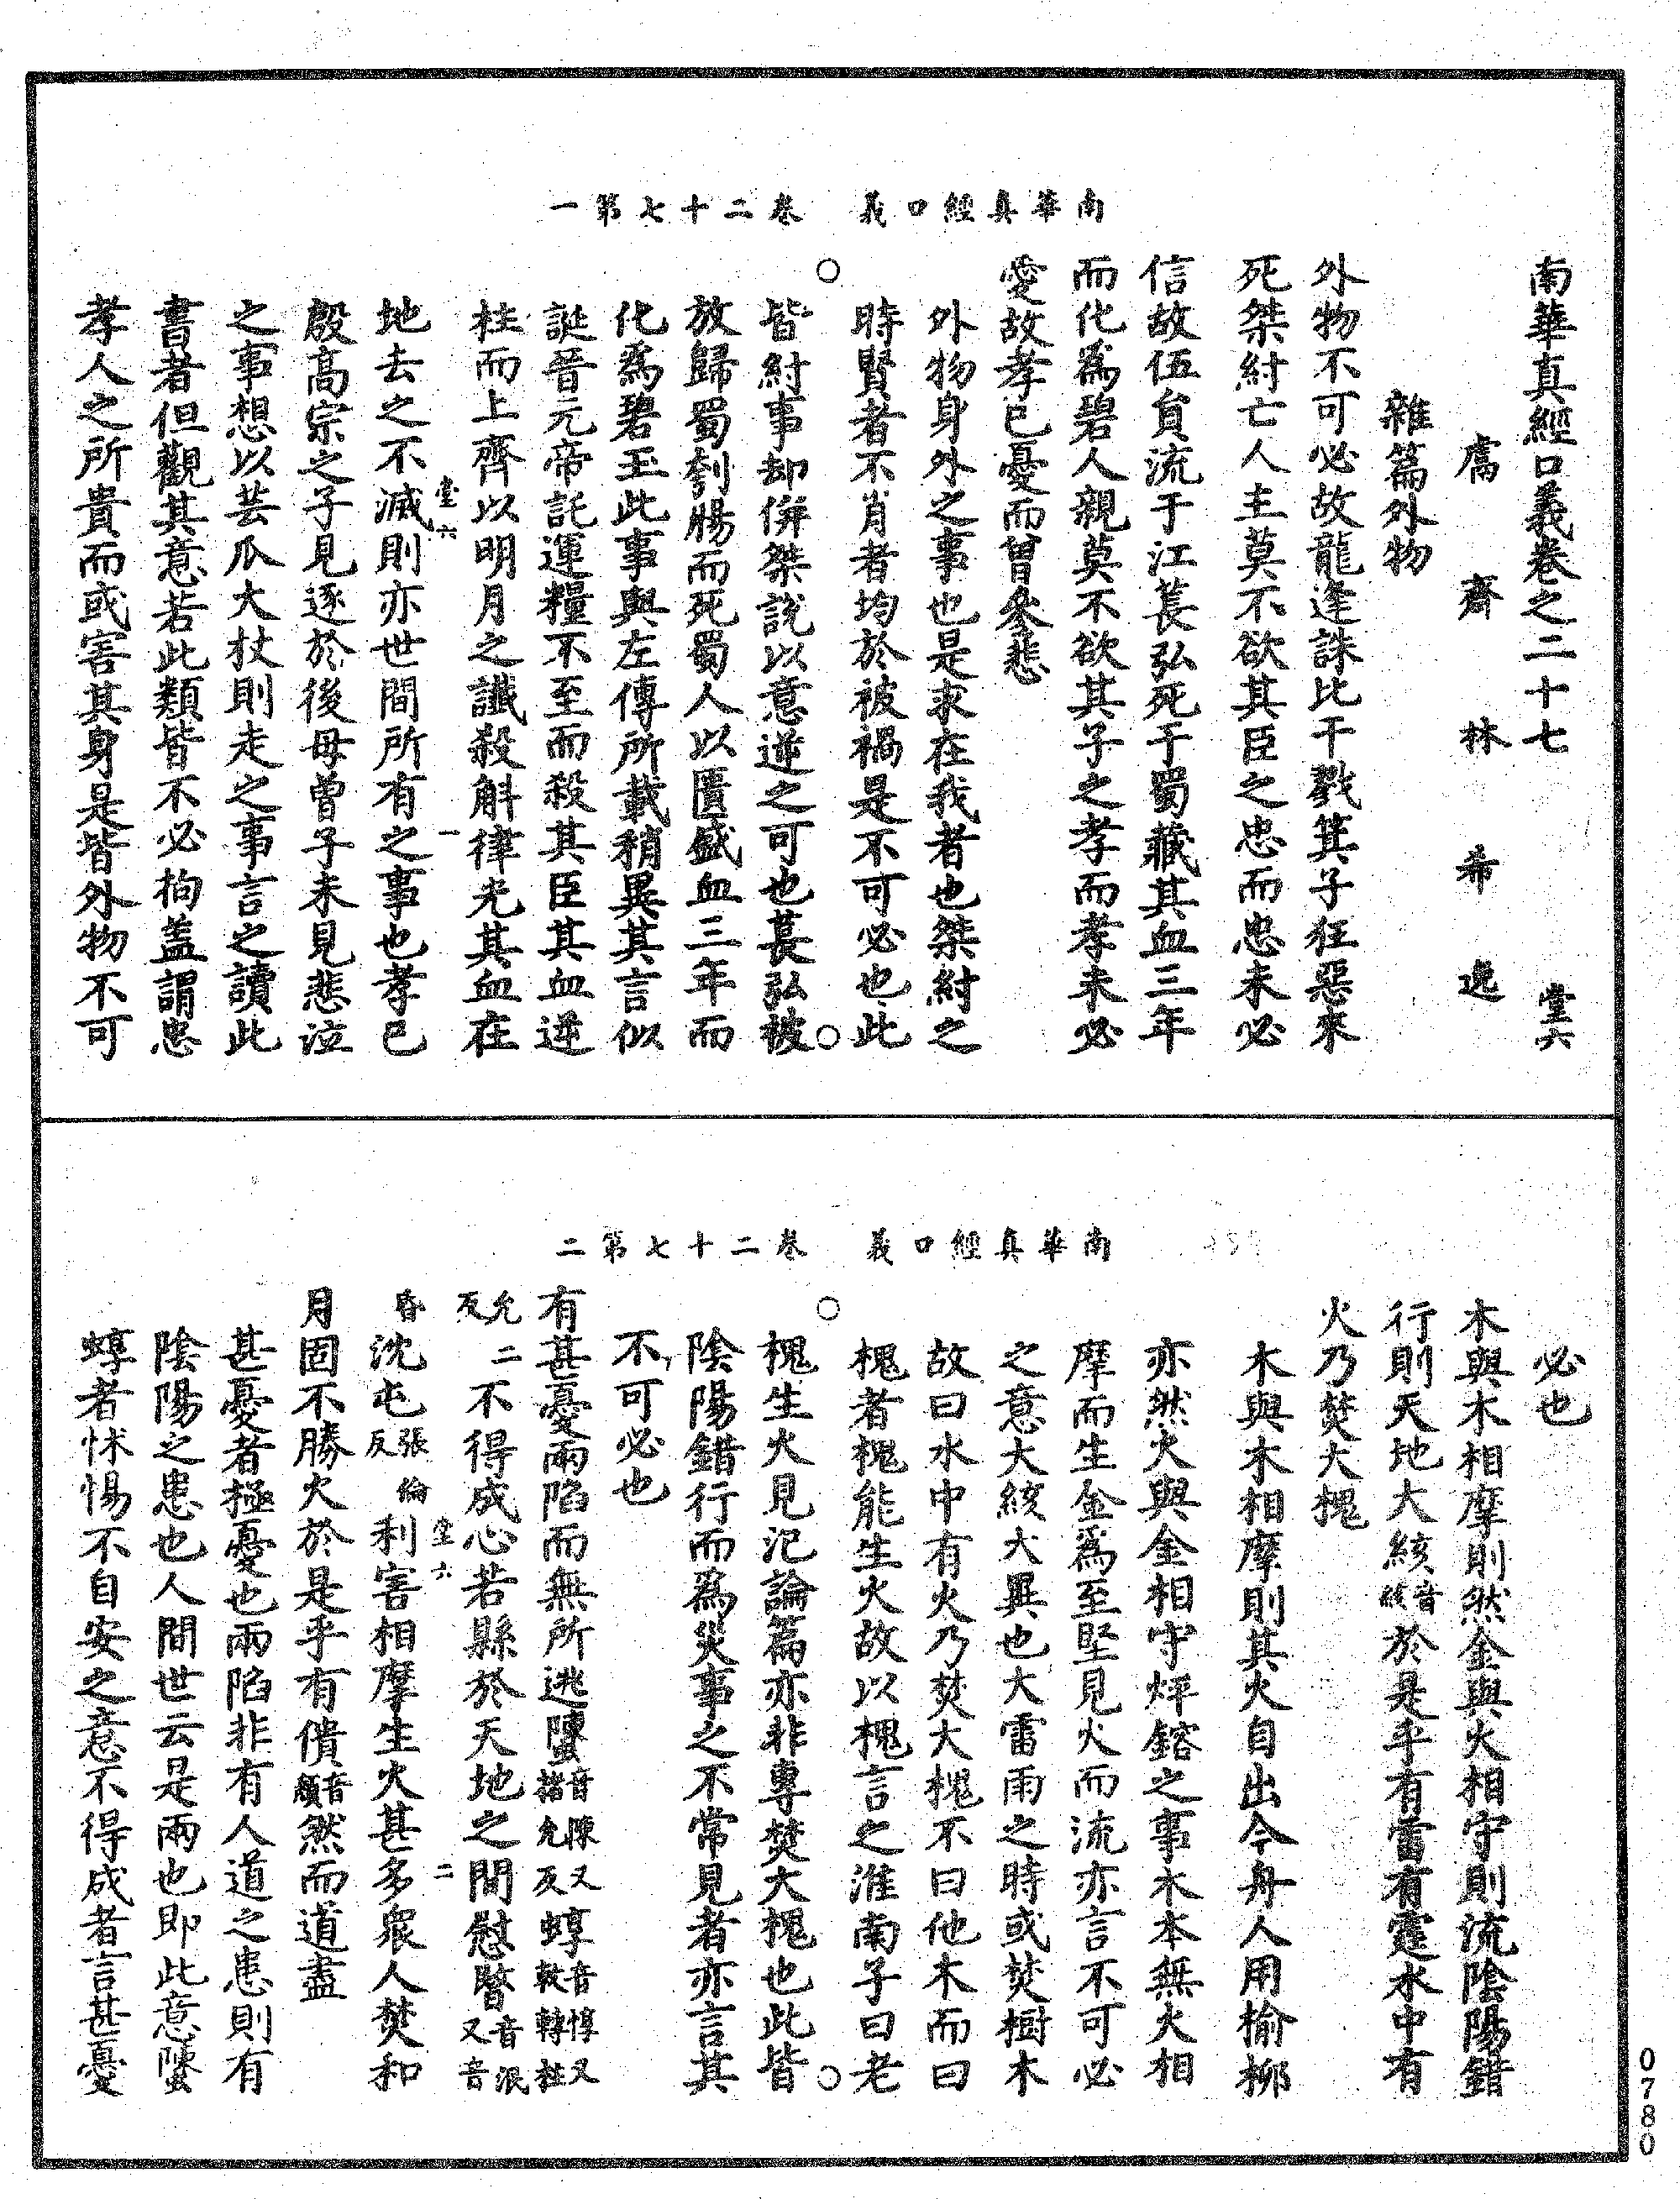 南華真經口義 卷二十七第一
南華真經口義卷之二十七 堂六
鬳齋林希逸
雜篇外物
外物不可必故龍逢誅比干戮箕子狂惡來
死桀紂亡人主莫不欲其臣之忠而忠未必
信故伍員流于江萇弘死于蜀藏其血三年
而化為碧人親莫不欲其子之孝而孝未必
愛故孝己憂而曾參悲
外物身外之事也是求在我者也桀紂之
時賢者不肖者均於被禍是不可必也此
皆紂事却併桀說以意逆之可也萇弘被
放歸蜀刳腸而死蜀人以匱盛血三年而
化為碧玉此事與左傳所載稍異其言似
誕晉元帝託運糧不至而殺其臣其血逆
柱而上齊以明月之讖殺斛律光其血在
地去之不滅則亦世間所有之事也孝己
堂六 一
殷高宗之子見逐於後母曾子未見悲泣
之事想以芸瓜大杖則走之事言之讀此
書者但觀其意若此類皆不必拘蓋謂忠
孝人之所貴而或害其身是皆外物不可
南華真經口義 卷二十七第二
必也
木與木相摩則然金與火相守則流陰陽錯
行則天地大絯音駭於是乎有雷有霆水中有
火乃焚大槐
木與木相摩則其火自出今舟人用榆柳
亦然火與金相守烀鎔之事木本無火相
摩而生金為至堅見火而流亦言不可必
之意大絯大異也大雷雨之時或焚樹木
故曰水中有火乃焚大槐不曰他木而曰
槐者槐能生火故以槐言之淮南子曰老
槐生火見氾論篇亦非專焚大槐也此皆
陰陽錯行而為災事之不常見者亦言其
不可必也
有甚憂兩陷而無所逃螴音陳又楮允反蜳音惇又敕轉柱
允二反不得成心若縣於天地之間慰暋音泯又音
昏沈屯張倫反利害相摩生火甚多衆人焚和
堂六 二
月固不勝火於是乎有僓音頹然而道盡
甚憂者極憂也兩陷非有人道之患則有
陰陽之患也人間世云是兩也即此意螴
蜳者怵惕不自安之意不得成者言甚憂
0780